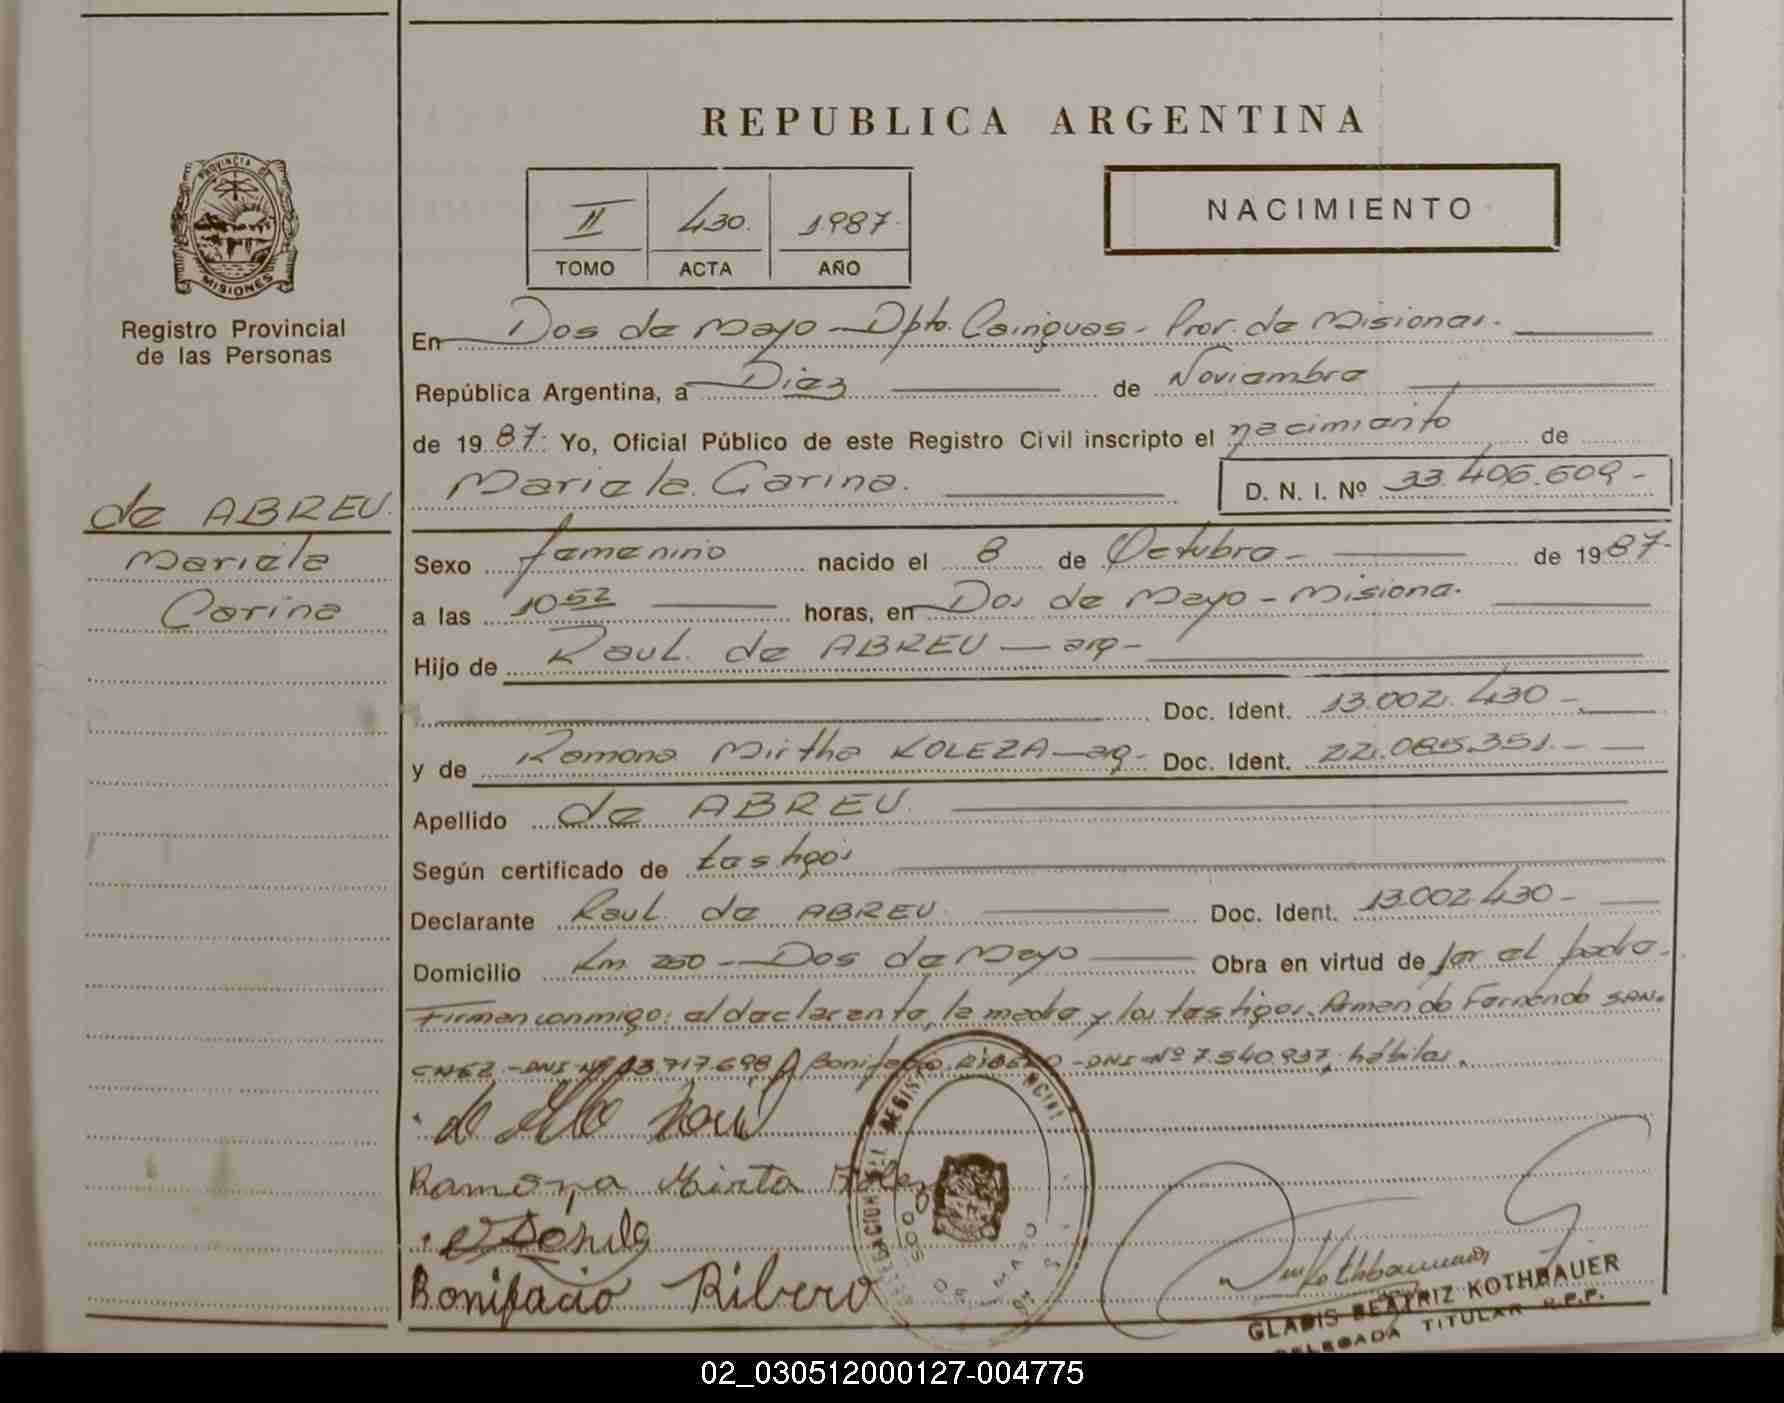 REPUBLICA ARGENTINA
PROVINCIA DE
MISIONES
Registro Provincial
de las Personas
II 430. 1987.
TOMO ACTA AÑO
NACIMIENTO
En Dos de Mayo - Dpto. Cainguas - Prov. de Misiones.
República Argentina, a Diez de Noviembre
de 1987. Yo, Oficial Público de este Registro Civil inscripto el nacimiento de
Mariela Carina. D. N. I. Nº 33.406.609-
de ABREU.
Mariela
Carina
Sexo femenino nacido el 8 de Octubre - de 1987-
a las 10 52 horas, en Dos de Mayo - Misiones.
Hijo de Raul de ABREU - arg -
Doc. Ident. 13.002.430 -
y de Ramona Mirtha KOLEZA - arg - Doc. Ident. 22.085.351. -
Apellido de ABREU.
Según certificado de testigos
Declarante Raul de ABREU Doc. Ident. 13.002.430 -
Domicilio Km. 250 - Dos de Mayo Obra en virtud de ser el padre.
Firman conmigo: el declarante, la madre y los testigos: Armando Fernando SAN-
CHEZ - DNI Nº 13.717.698 Bonifacio RIBERO - DNI Nº 7.540.937, hábiles.
Ramona Mirta
Bonifacio Ribero
DOS DE MAYO
Kothbauer
GLADIS BEATRIZ KOTHBAUER
DELEGADA TITULAR R.P.P.
02_030512000127-004775